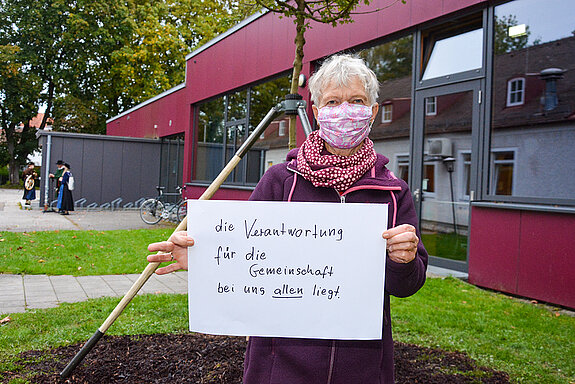 die Verantwortung
für die
Gemeinschaft
bei uns allen liegt.